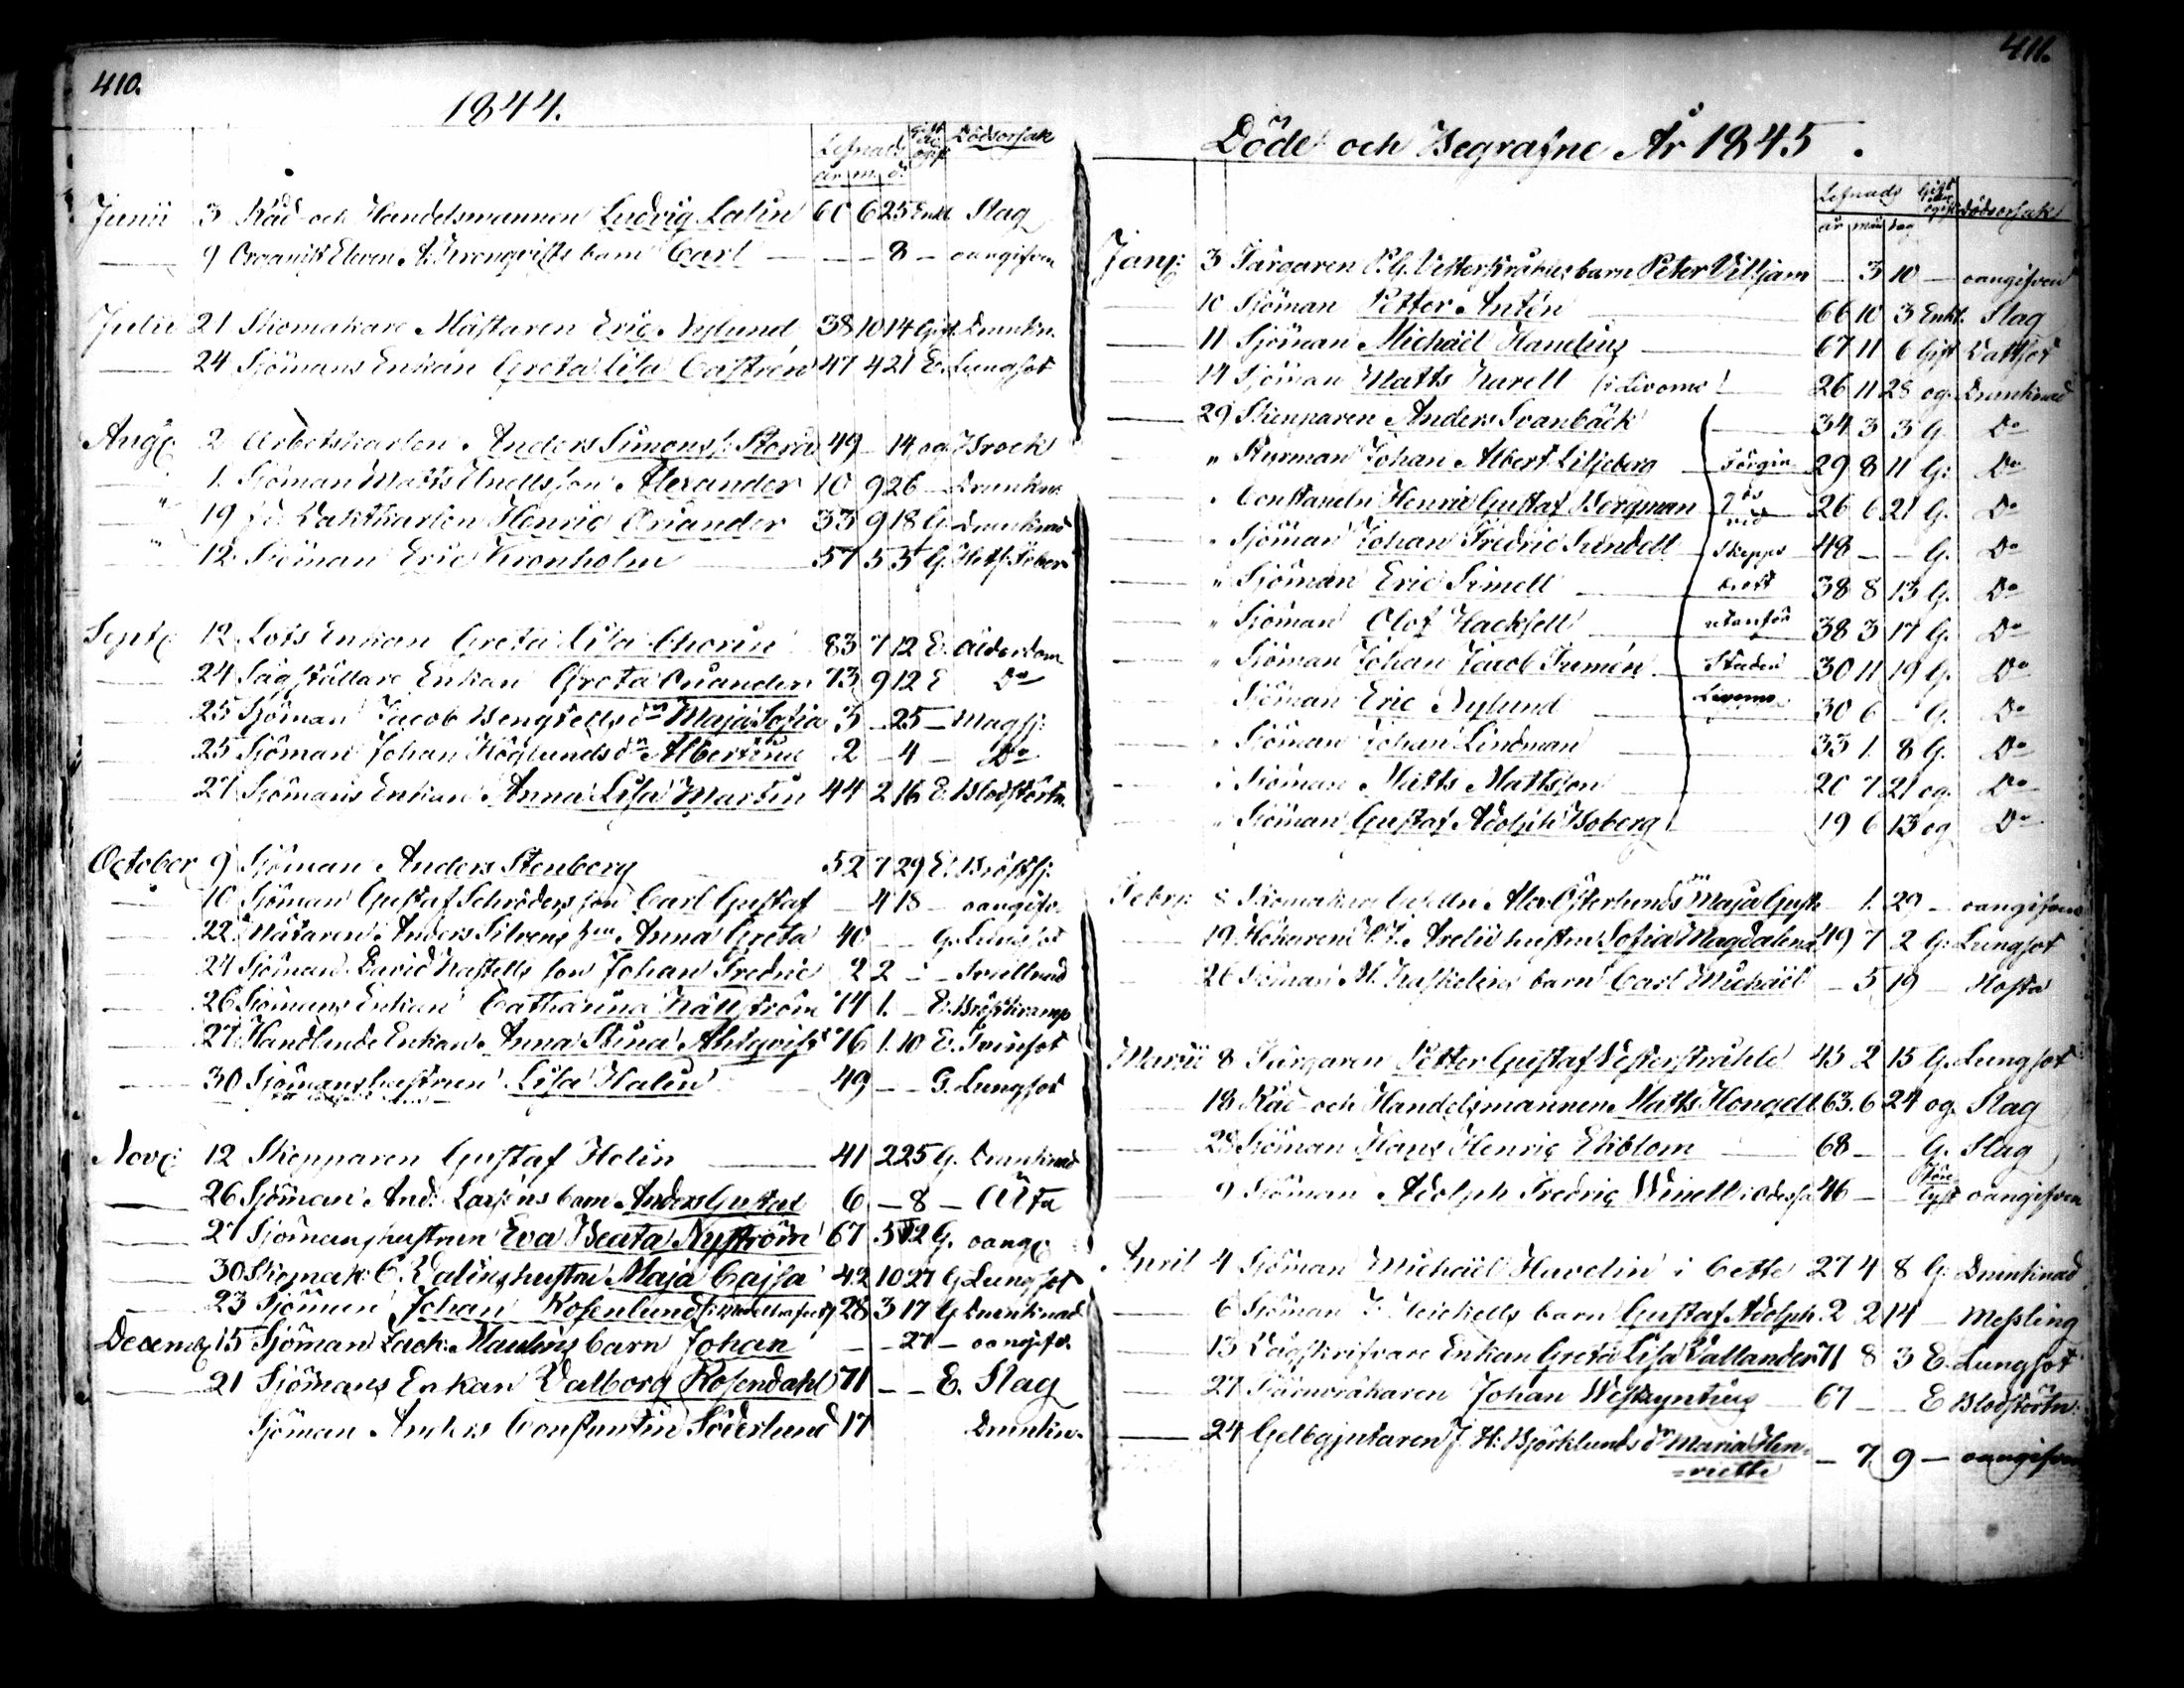 410.
1844.
Lefnads
år m. d.
Dödsorsak
Junii 3 Råd- och Handelsmannen Ludvig Lalin 60 6 25 Enkl Slag
9 Organist Eleven A. Kronqvists barn Carl — — 8 — oangifven
Julii 21 Skomakare Mästaren Eric Nylund 38 10 14 Gift. Drunkn.
24 Sjömans Enkan Greta Lisa Castrén 47 4 21 E. Lungsot
Aug: 2 Arbetskarlen Anders Simons: Stora 49 — 14 og Brock
1. Sjöman Matts son Alexander 10 9 26 — Drunkn.
19 fd Vaktkarlen Henric Oriander 33 9 18 G. Drunknad
12 Sjöman Eric Kronholm 57 5 5 G. Hets. Feber
Sept: 12 Lots Enkan Greta Lisa Chorin 83 7 12 E. Ålderdom
24 Sågställare Enkan Greta 73 9 12 E Do
25 Sjöman Jacob Bengtells dr Maja Sofia 3 — 25 — Magsj:
25 Sjöman Johan Höglunds dr Albertina 2 — 4 — Do
27 Sjömans Enkan Anna Lisa Martin 44 2 16 E. Blodstörtn.
October 9 Sjöman Anders Stenberg 52 7 29 E. Bröstsj:
10 Sjöman Gustaf Schröders son Carl Gustaf — 4 18 — oangifv.
22 Mätaren Anders Silvens hu Anna Greta 40 — — G. Lungsot
24 Sjöman David Nassells son Johan Fredric 2 2 —
26 Sjömans Enkan Catharina Källström 74 1. — E. Bröstkramp
27 Handlande Enkan Anna Stina Ahlqvist 76 1. 10 E. Tvinsot
30 Sjömanshustrun Lisa Halin 49 — — G. Lungsot
Nov: 12 Skepparen Gustaf Holin 41 2 25 G. Drunknad
26 Sjöman And: barn Anders Gustaf 6 — 8 — Ålta
27 Sjömanshustrun Eva Beata Nyström 67 5 12 G. oang:
30 Skomak: C. Dalins hustru Maja Cajsa 42 10 27 G Lungsot
23 Sjöman Johan Rosenlund 28 3 17 G Drunknad
Decemb: 15 Sjöman Zach: Maulins barn Johan — — 27 — oangifv.
21 Sjömans Enkan Valborg Rosendahl 71 — — E. Slag
Sjöman Anders Constantin Söderlund 17 Drunkn.
411.
Döde och Begrafne År 1845.
Lefnads Gift eller ogift Dödsorsak
år mån dag
Janu: 3 Färgaren P. G. Vetterstråhles barn Peter Viljam — 3 10 — oangifven
10 Sjöman Petter Antén 66 10 3 Enkl. Slag
11 Sjöman Michäel Handlins 67 11 6 Gift Vattsot
14 Sjöman Matts Karell (i Livorno) 26 11 28 og. Drunknad
29 Skepparen Anders Svanbäck 34 3 3 G. Do
" Styrman Johan Albert Liljeberg Förgin- 29 8 11 G: Do
" Constapeln Henric Gustaf Bergman gos vid 26 6 21 G. Do
" Sjöman Johan Fredric Sundell Skepps 48 — — G. Do
" Sjöman Eric Simell brott 38 8 13 G. Do
" Sjöman Olof Hacksell utanför 38 3 17 G. Do
" Sjöman Johan Jacob Sumén Staden 30 11 19 G. Do
Sjöman Eric Nylund Livorno 30 6 — G. Do
" Sjöman Johan Lindman 33 1. 8 G. Do
" Sjöman Matts Mattsson 20 7 21 og. Do
" Sjöman Gustaf Adolph Boberg 19 6 13 og Do
Febry: 8 Skomakare Gesälln Alex Österlunds dr Maja Gust: — 1. 29 — oangifven
19 Hökaren P. J. Arelii hustru Sofia Magdalena 49 7 2 G. Lungsot
26 Sjöman M. barn Carl Michäel — 5 19 — Hosta
Martii 8 Färgaren Petter Gustaf Vetterstråhle 45 2 15 G. Lungsot
18 Råd- och Handelsmannen Matts Hongell 63. 6 24 og. Slag
28 Sjöman Hans Henric Ekblom 68 — — G. Slag
9 Sjöman Adolph Fredric Winell i Odessa 46 — — oangifven
April 4 Sjöman Michäel Havelin i Cette 27 4 8 G. Drunknad
6 Sjöman J. Heickells barn Gustaf Adolph. 2 2 14 — Messling
13 Rådskrifvare Enkan Greta Lisa Vallander 71 8 3 E. Lungsot
27 Stämvräkaren Johan Westzynthius 67 — — E Blodstörtn:
24 Gelbgjutaren J. H: Björklunds dr Maria Hen- — 7 9 — oangifven
=riette